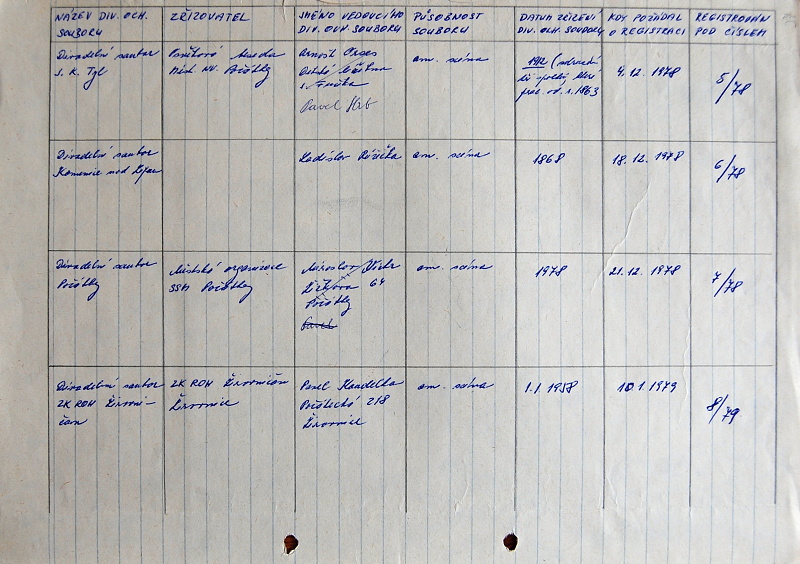 NÁZEV DIV. OCH. SOUBORU
ZŘIZOVATEL
JMÉNO VEDOUCÍHO DIV. OCH. SOUBORU
PŮSOBNOST SOUBORU
DATUM ZŘÍZENÍ DIV. OCH. SOUBORU
KDY POŽÁDAL O REGISTRACI
REGISTROVÁN POD ČÍSLEM
Divadelní soubor
J. K. Tyl
Počátky
Arnošt
Pavel
am. scéna
1912
spolků, které
od r. 1863
4. 12. 1978
5/78
Divadelní soubor
Kamenice nad Lipou
Ladislav Růžička
am. scéna
1868
18. 12. 1978
6/78
Divadelní soubor
Počátky
Městská organizace
SSM Počátky
Miroslav
Žižkova 64
Počátky
Pavel
am. scéna
1978
21. 12. 1978
7/78
Divadelní soubor
ZK ROH Žirovni-
čan
ZK ROH Žirovničan
Žirovnice
Pavel Kandelka
Počátecká 218
Žirovnice
am. scéna
1. 1. 1958
10. 1. 1979
8/79